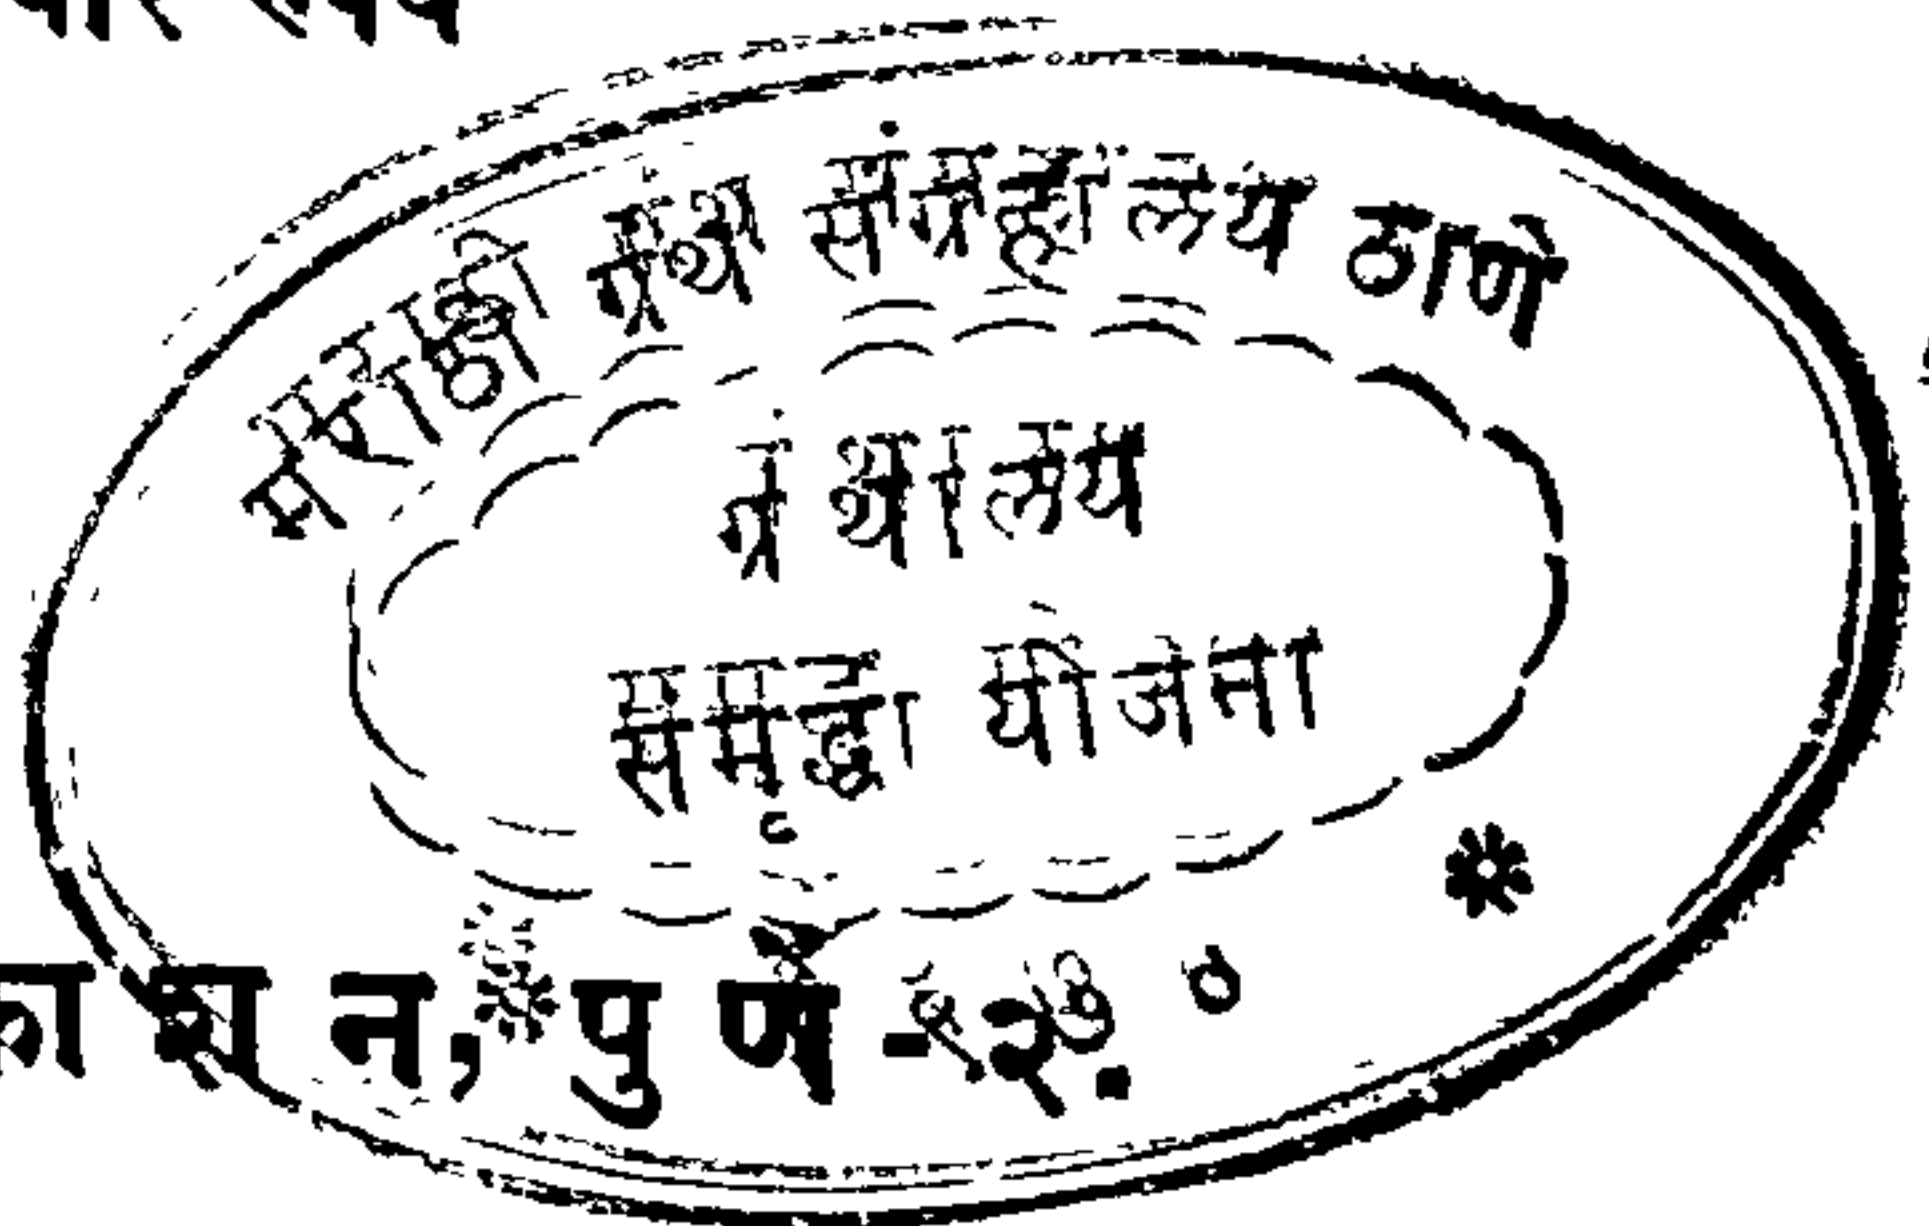 मराठी ग्रंथ संग्रहालय ठाणे
ग्रंथालय
समृद्धी योजना
न, पुणे - २.